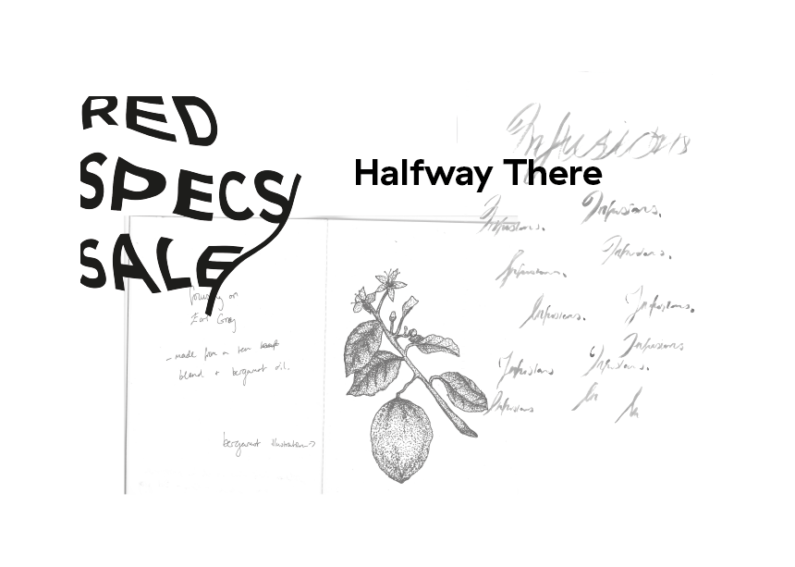 RED
SPECS
SALE
Halfway There
Infusions
Infusions.
Infusions.
Infusions.
Infusions.
Infusions.
Infusions.
Infusions
Infusions
Infusions.
Infusions
In
In
focusing on
Earl Grey
- made from a
blend + bergamot oil.
bergamot illustration →